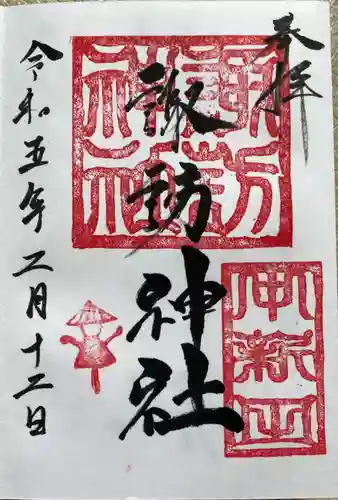 奉拝
諏訪神社
諏訪神社
令和五年二月十二日